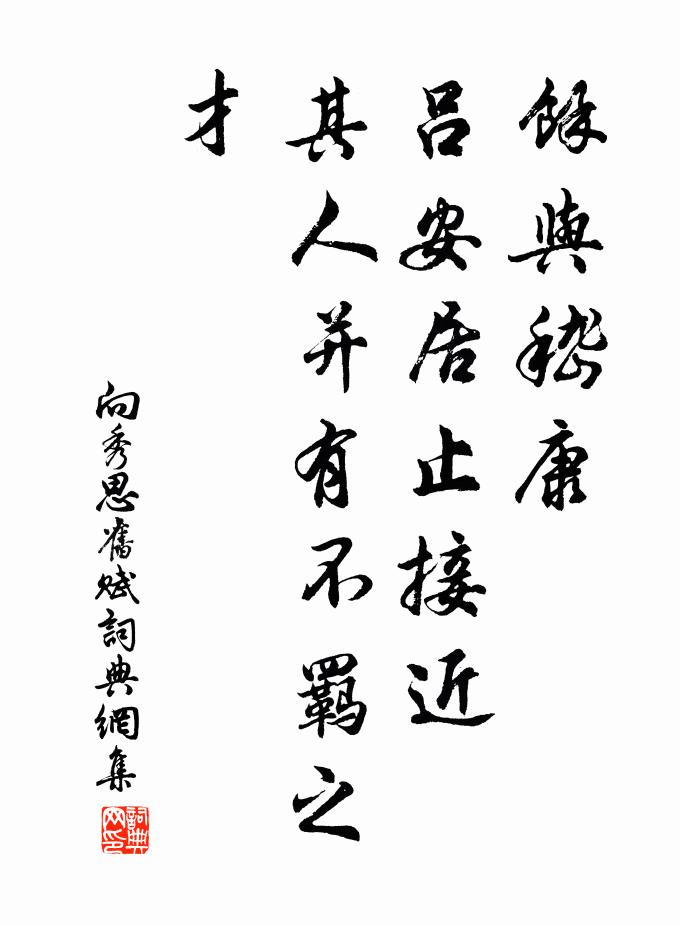 餘與嵇康
呂安居止接近
其人并有不羈之
才
向秀思舊賦詞典網集
詞典網印